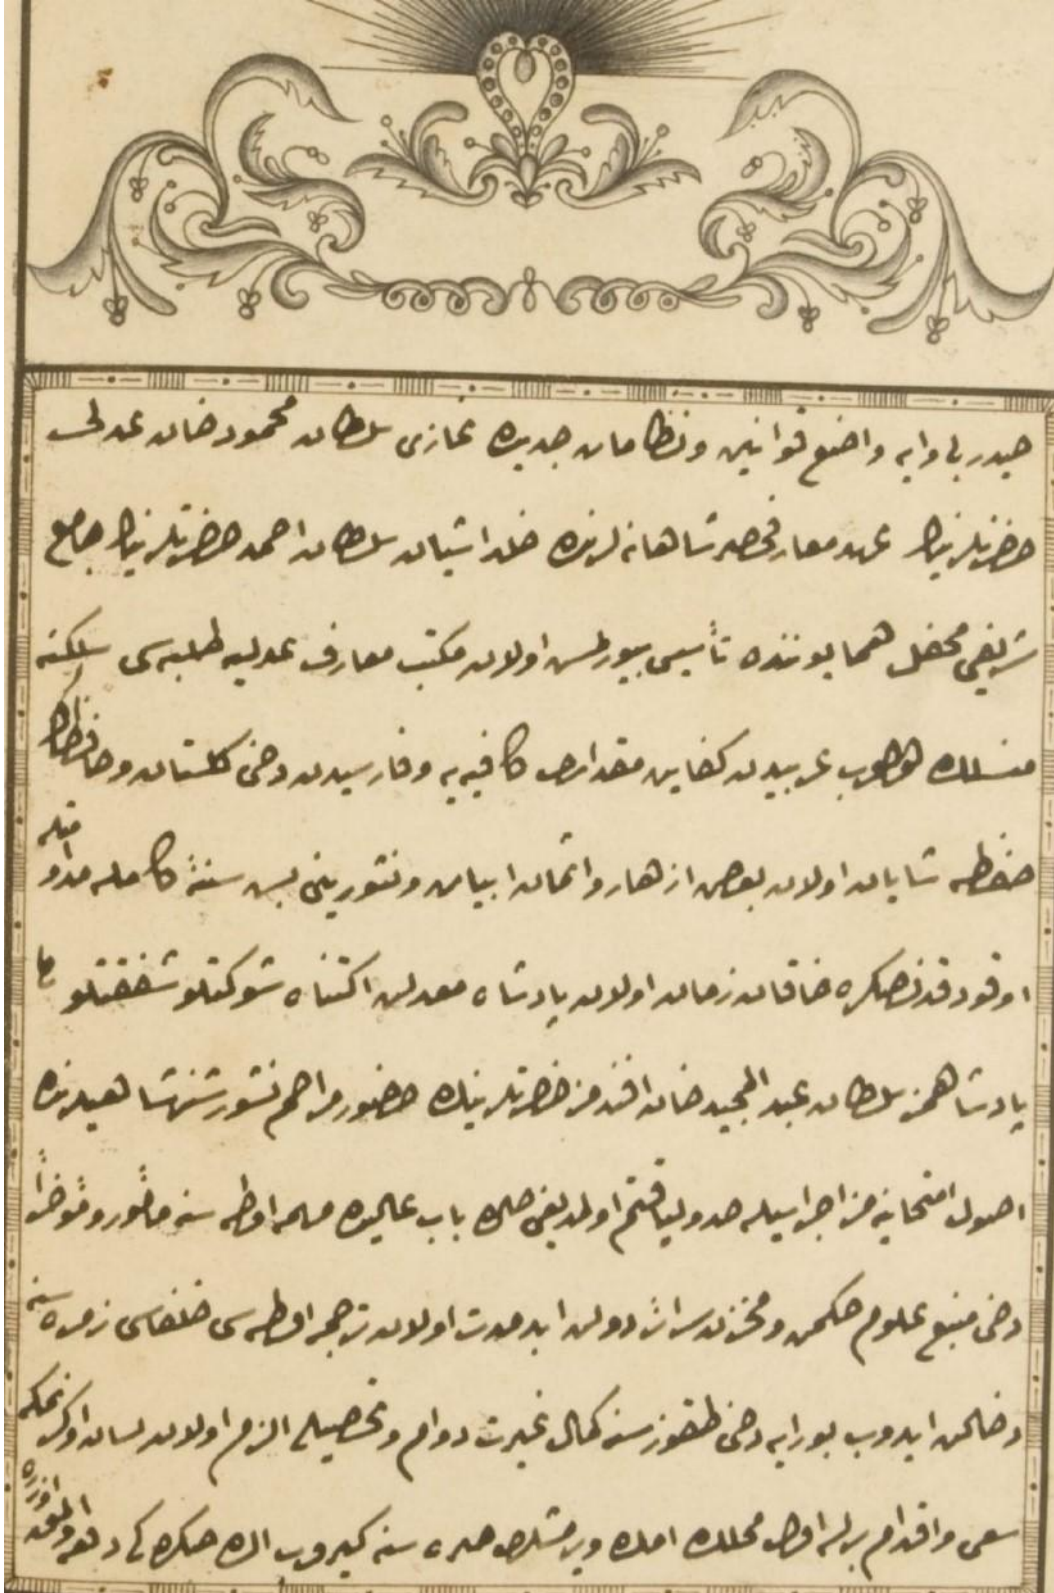 حیدر لوایه واضع قوانین ونظامات جدیده غازی سلطان محمود خان عدلی
حضرتلرینک عهد معارفحصر شاهانه لرنده خلد اشیان سلطان احمد حضرتلرینک جامع
شریفی محفل همایوننده تأسیس بیورلمش اولان مکتب معارف عدلیه طلبه سی سلکنه
منسلک اولوب عربیدن کفایت مقداری کافیه یه وفارسیدن دخی گلستان وحافظک
حفظه شایان اولان بعض ازهار واثمار ابیات ونثورینی بش سنهٔ کامله مداومتله
اوقودقدنصکره خاقان زمان اولان پادشاه معدلت اکتناه شوکتلو شفقتلو
پادشاهمز سلطان عبد المجید خان افندمز حضرتلرینک حضور مراحم نشور شهنشاهیلرنده
اصول امتحانیه مز اجراسیله حد ولیاقتم اولدیغی حالده باب عالیده مهمه اوطه سنه مأمور ومؤخراً
دخی منبع علوم حکمت ومخزن اسرار دولت ابد مدت اولان ترجمه اوطه سی خلفاسی زمره سنه
دخالت ایدوب بورایه دخی طقوز سنه کمال غیرت دوام وتحصیلی الزم اولان لسان
سعی واقدام برله اول محلده املده ویرمشلک سنه کیروب الده